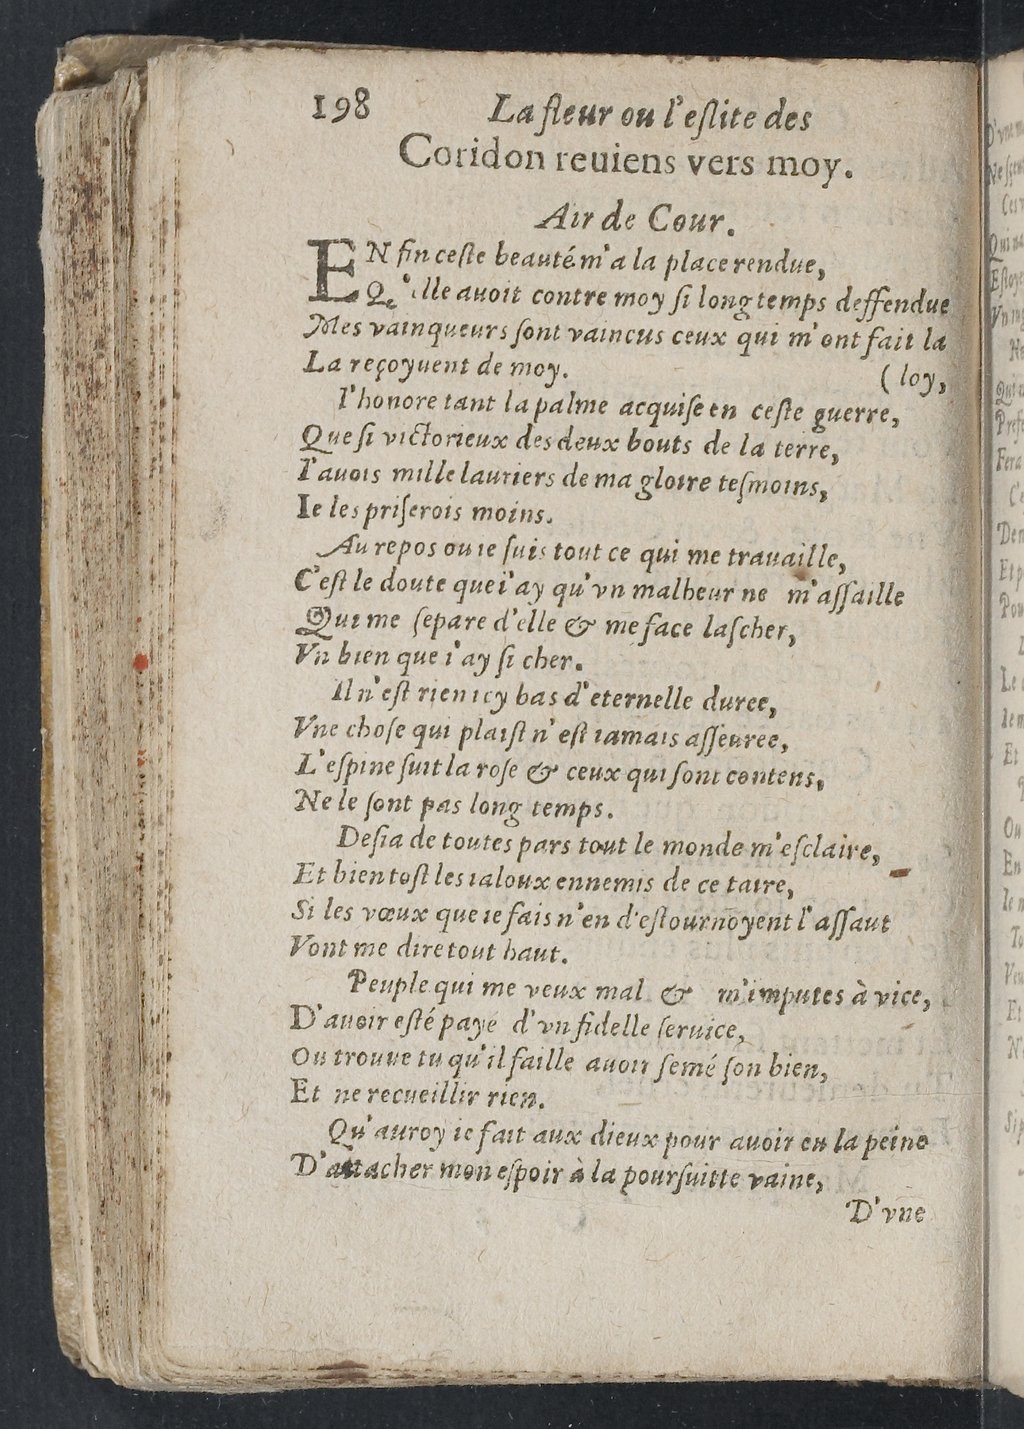 198 La fleur ou l'eſlite des
Coridon reuiens vers moy.
Air de Cour.
EN fin ceſte beauté m'a la place rendue,
Qu'elle auoit contre moy ſi long temps deffendue
Mes vainqueurs ſont vaincus ceux qui m'ont fait la
La reçoyuent de moy. (loy,
I'honore tant la palme acquiſe en ceſte guerre,
Que ſi victorieux des deux bouts de la terre,
I'auois mille lauriers de ma gloire teſmoins,
Ie les priſerois moins.
Au repos ou ie ſuis tout ce qui me trauaille,
C'eſt le doute que i'ay qu'vn malheur ne m'aſſaille
Qui me ſepare d'elle & me face laſcher,
Vn bien que i'ay ſi cher.
Il n'eſt rien icy bas d'eternelle duree,
Vne choſe qui plaiſt n'eſt iamais aſſeuree,
L'eſpine ſuit la roſe & ceux qui ſont contens,
Ne le ſont pas long temps.
Deſia de toutes pars tout le monde m'eſclaire,
Et bien toſt les ialoux ennemis de ce taire,
Si les vœux que ie fais n'en d'eſtournoyent l'aſſaut
Vont me dire tout haut.
Peuple qui me veux mal & m'imputes à vice,
D'auoir eſté payé d'vn fidelle ſeruice,
Ou trouue tu qu'il faille auoir ſemé ſon bien,
Et ne recueillir rien.
Qu'auroy ie fait aux dieux pour auoir eu la peine
D'attacher mon eſpoir à la pourſuitte vaine,
D'vne